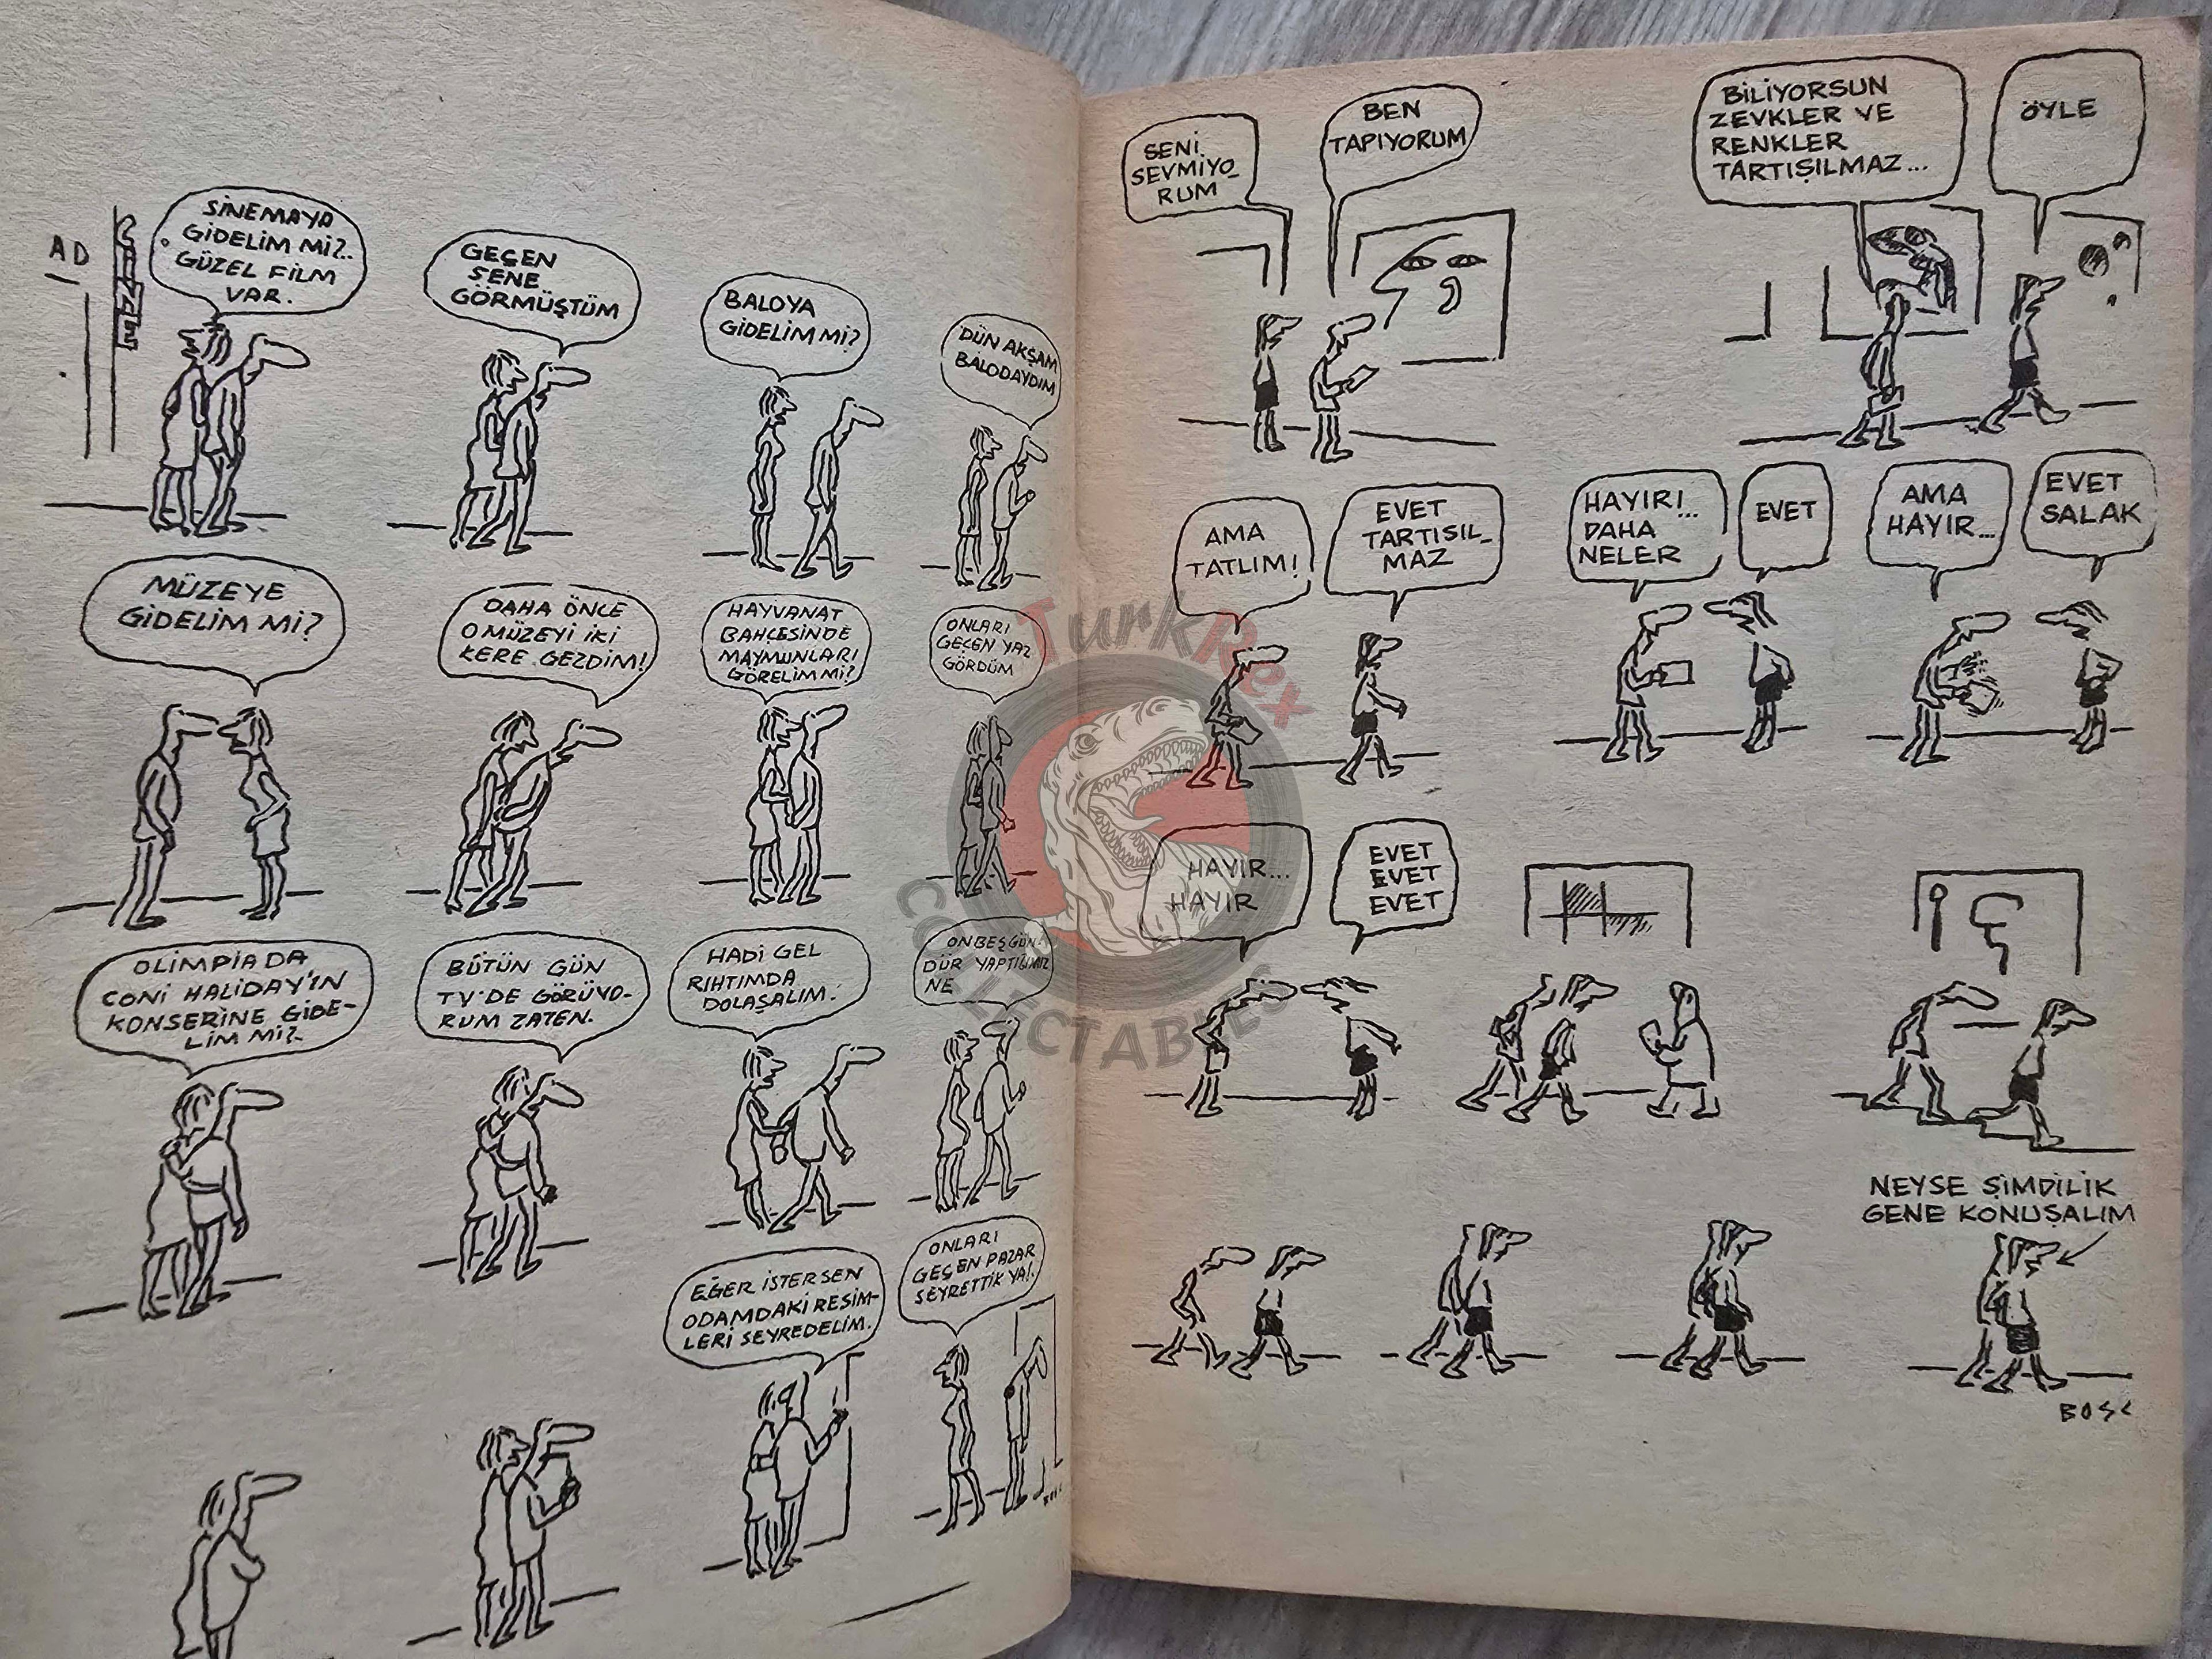 AD
CİNE
SİNEMAYA
GİDELİM Mİ?..
GÜZEL FİLM
VAR.
GEÇEN
SENE
GÖRMÜŞTÜM
BALOYA
GİDELİM Mİ?
DÜN AKŞAM
BALODAYDIM
MÜZEYE
GİDELİM Mİ?
DAHA ÖNCE
O MÜZEYİ İKİ
KERE GEZDİM!
HAYVANAT
BAHÇESİNDE
MAYMUNLARI
GÖRELİM Mİ?
ONLARI
GEÇEN YAZ
GÖRDÜM
OLİMPİADA
CONİ HALİDAY'IN
KONSERİNE GİDE-
LİM Mİ?
BÜTÜN GÜN
TV'DE GÖRÜYO-
RUM ZATEN.
HADİ GEL
RIHTIMDA
DOLAŞALIM.
ONBEŞ GÜN-
DÜR YAPTIĞIMIZ
NE
EĞER İSTERSEN
ODAMDAKİ RESİM-
LERİ SEYREDELİM.
ONLARI
GEÇEN PAZAR
SEYRETTİK YA!.
BOSC
SENİ
SEVMİYO-
RUM
BEN
TAPIYORUM
BİLİYORSUN
ZEVKLER VE
RENKLER
TARTIŞILMAZ...
ÖYLE
AMA
TATLIM!
EVET
TARTISIL-
MAZ
HAYIR!...
DAHA
NELER
EVET
AMA
HAYIR...
EVET
SALAK
HAYIR...
HAYIR
EVET
EVET
EVET
NEYSE ŞİMDİLİK
GENE KONUŞALIM
BOSC
TurkRex
COLLECTABLES